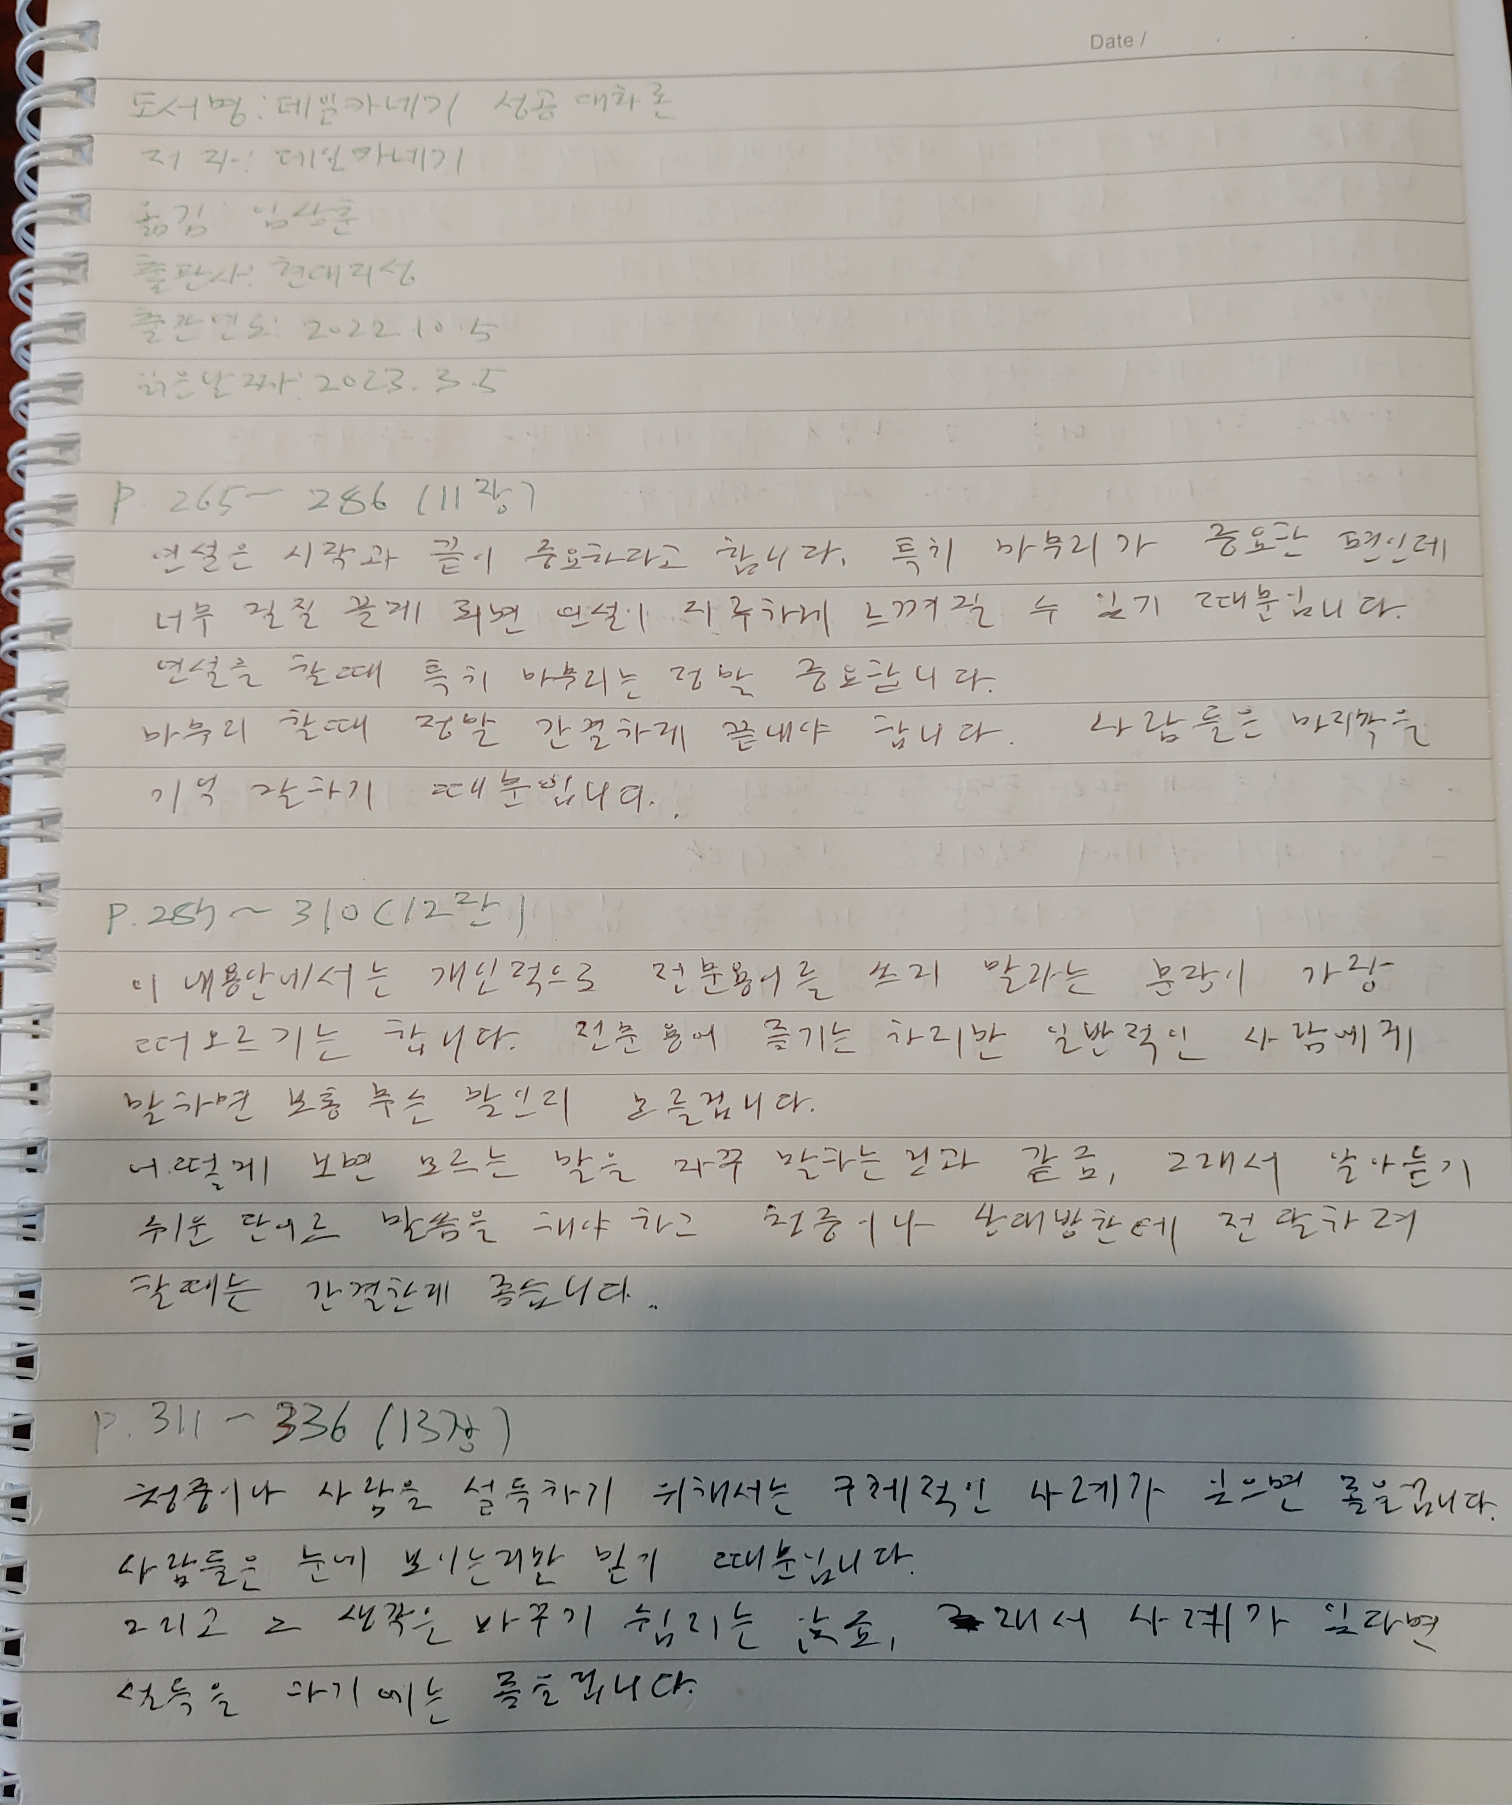 Date /
도서명: 데일카네기 성공대화론
저자: 데일카네기
옮김: 임상훈
출판사: 현대지성
출간연도: 2022.10.5
읽은날짜: 2023.3.5
P. 265~ 286 (11장)
연설은 시작과 끝이 중요하다고 합니다. 특히 마무리가 중요한 편인데
너무 질질 끌게 되면 연설이 지루하게 느껴질 수 있기 때문입니다.
연설을 할때 특히 마무리는 정말 중요합니다.
마무리 할때 정말 간결하게 끝내야 합니다. 사람들은 마지막을
기억 잘하기 때문입니다.
P. 287~ 310 (12장)
이 내용안에서는 개인적으로 전문용어를 쓰지 말라는 문장이 가장
떠오르기는 합니다. 전문용어 즐기는 하지만 일반적인 사람에게
말하면 보통 무슨 말인지 모를겁니다.
어떻게 보면 모르는 말을 자꾸 말하는건과 같죠, 그래서 알아듣기
쉬운 단어로 말씀을 해야 하고 청중이나 상대방한테 전달하려
할때는 간결한게 좋습니다.
P. 311 ~ 336 (13장)
청중이나 사람을 설득하기 위해서는 구체적인 사례가 있으면 좋을겁니다.
사람들은 눈에 보이는지만 믿기 때문입니다.
그리고 그 생각은 바꾸기 쉽지는 않죠, 그래서 사례가 있다면
설득을 하기에는 좋을겁니다.